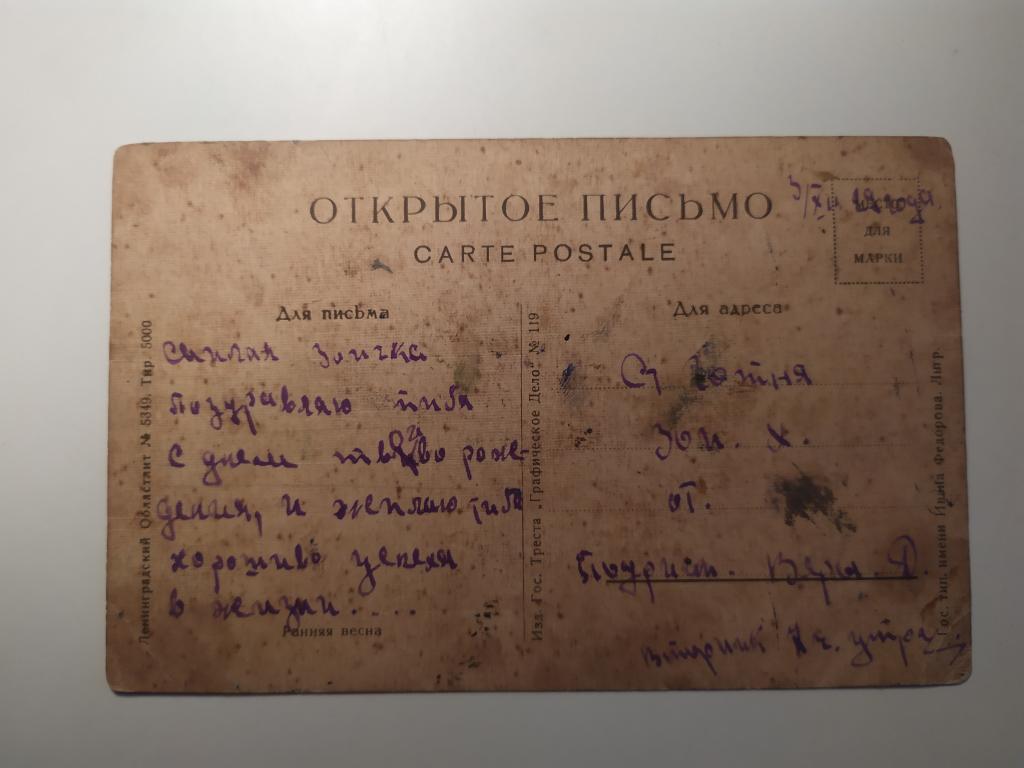 ОТКРЫТОЕ ПИСЬМО
CARTE POSTALE
МЕСТО
ДЛЯ
МАРКИ
3/XII 29 года.
Для письма
Милая Зоичка
Позуравляю тибя
с днем твоиво рож-
дения, и желаю тибе
хорошиво успеха
в жизни....
Ранняя весна
Для адреса
Зои. Х.
от.
Вера. Д
вторник 7 ч. утра
Ленинградский Областлит № 5349. Тир. 5000
Изд. Гос. Треста „Графическое Дело“ № 119
Гос. тип. имени Ивана Федорова. Литр.